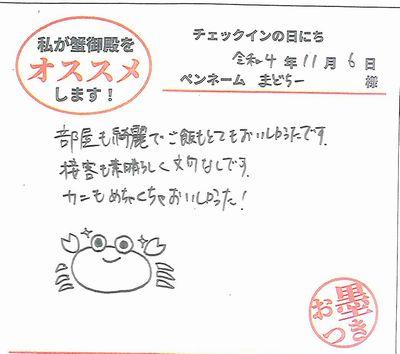 私が蟹御殿を
オススメ
します！
チェックインの日にち
令和4年11月6日
ペンネーム まどらー 様
部屋も綺麗でご飯もとてもおいしかったです。
接客も素晴らしく文句なしです。
カニもめちゃくちゃおいしかった！
お墨つき